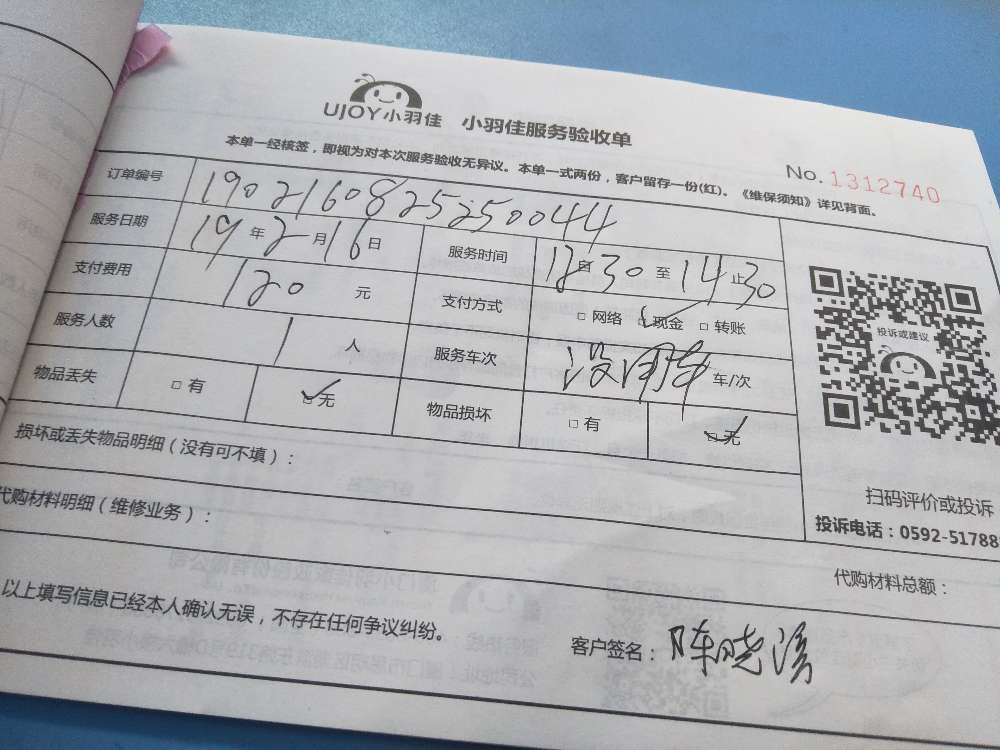 UJOY小羽佳 小羽佳服务验收单
本单一经核签，即视为对本次服务验收无异议。本单一式两份，客户留存一份(红)。《维保须知》详见背面。
No.1312740
订单编号 19021608252500044
服务日期 19年2月16日 服务时间 12自30至14止30
支付费用 120元 支付方式 □网络 ☑现金 □转账
服务人数 1人 服务车次 没用车 车/次
物品丢失 □有 ☑无 物品损坏 □有 ☑无
投诉或建议
损坏或丢失物品明细（没有可不填）：
扫码评价或投诉
代购材料明细（维修业务）：
投诉电话：0592-51788
代购材料总额：
以上填写信息已经本人确认无误，不存在任何争议纠纷。
客户签名：陈晓